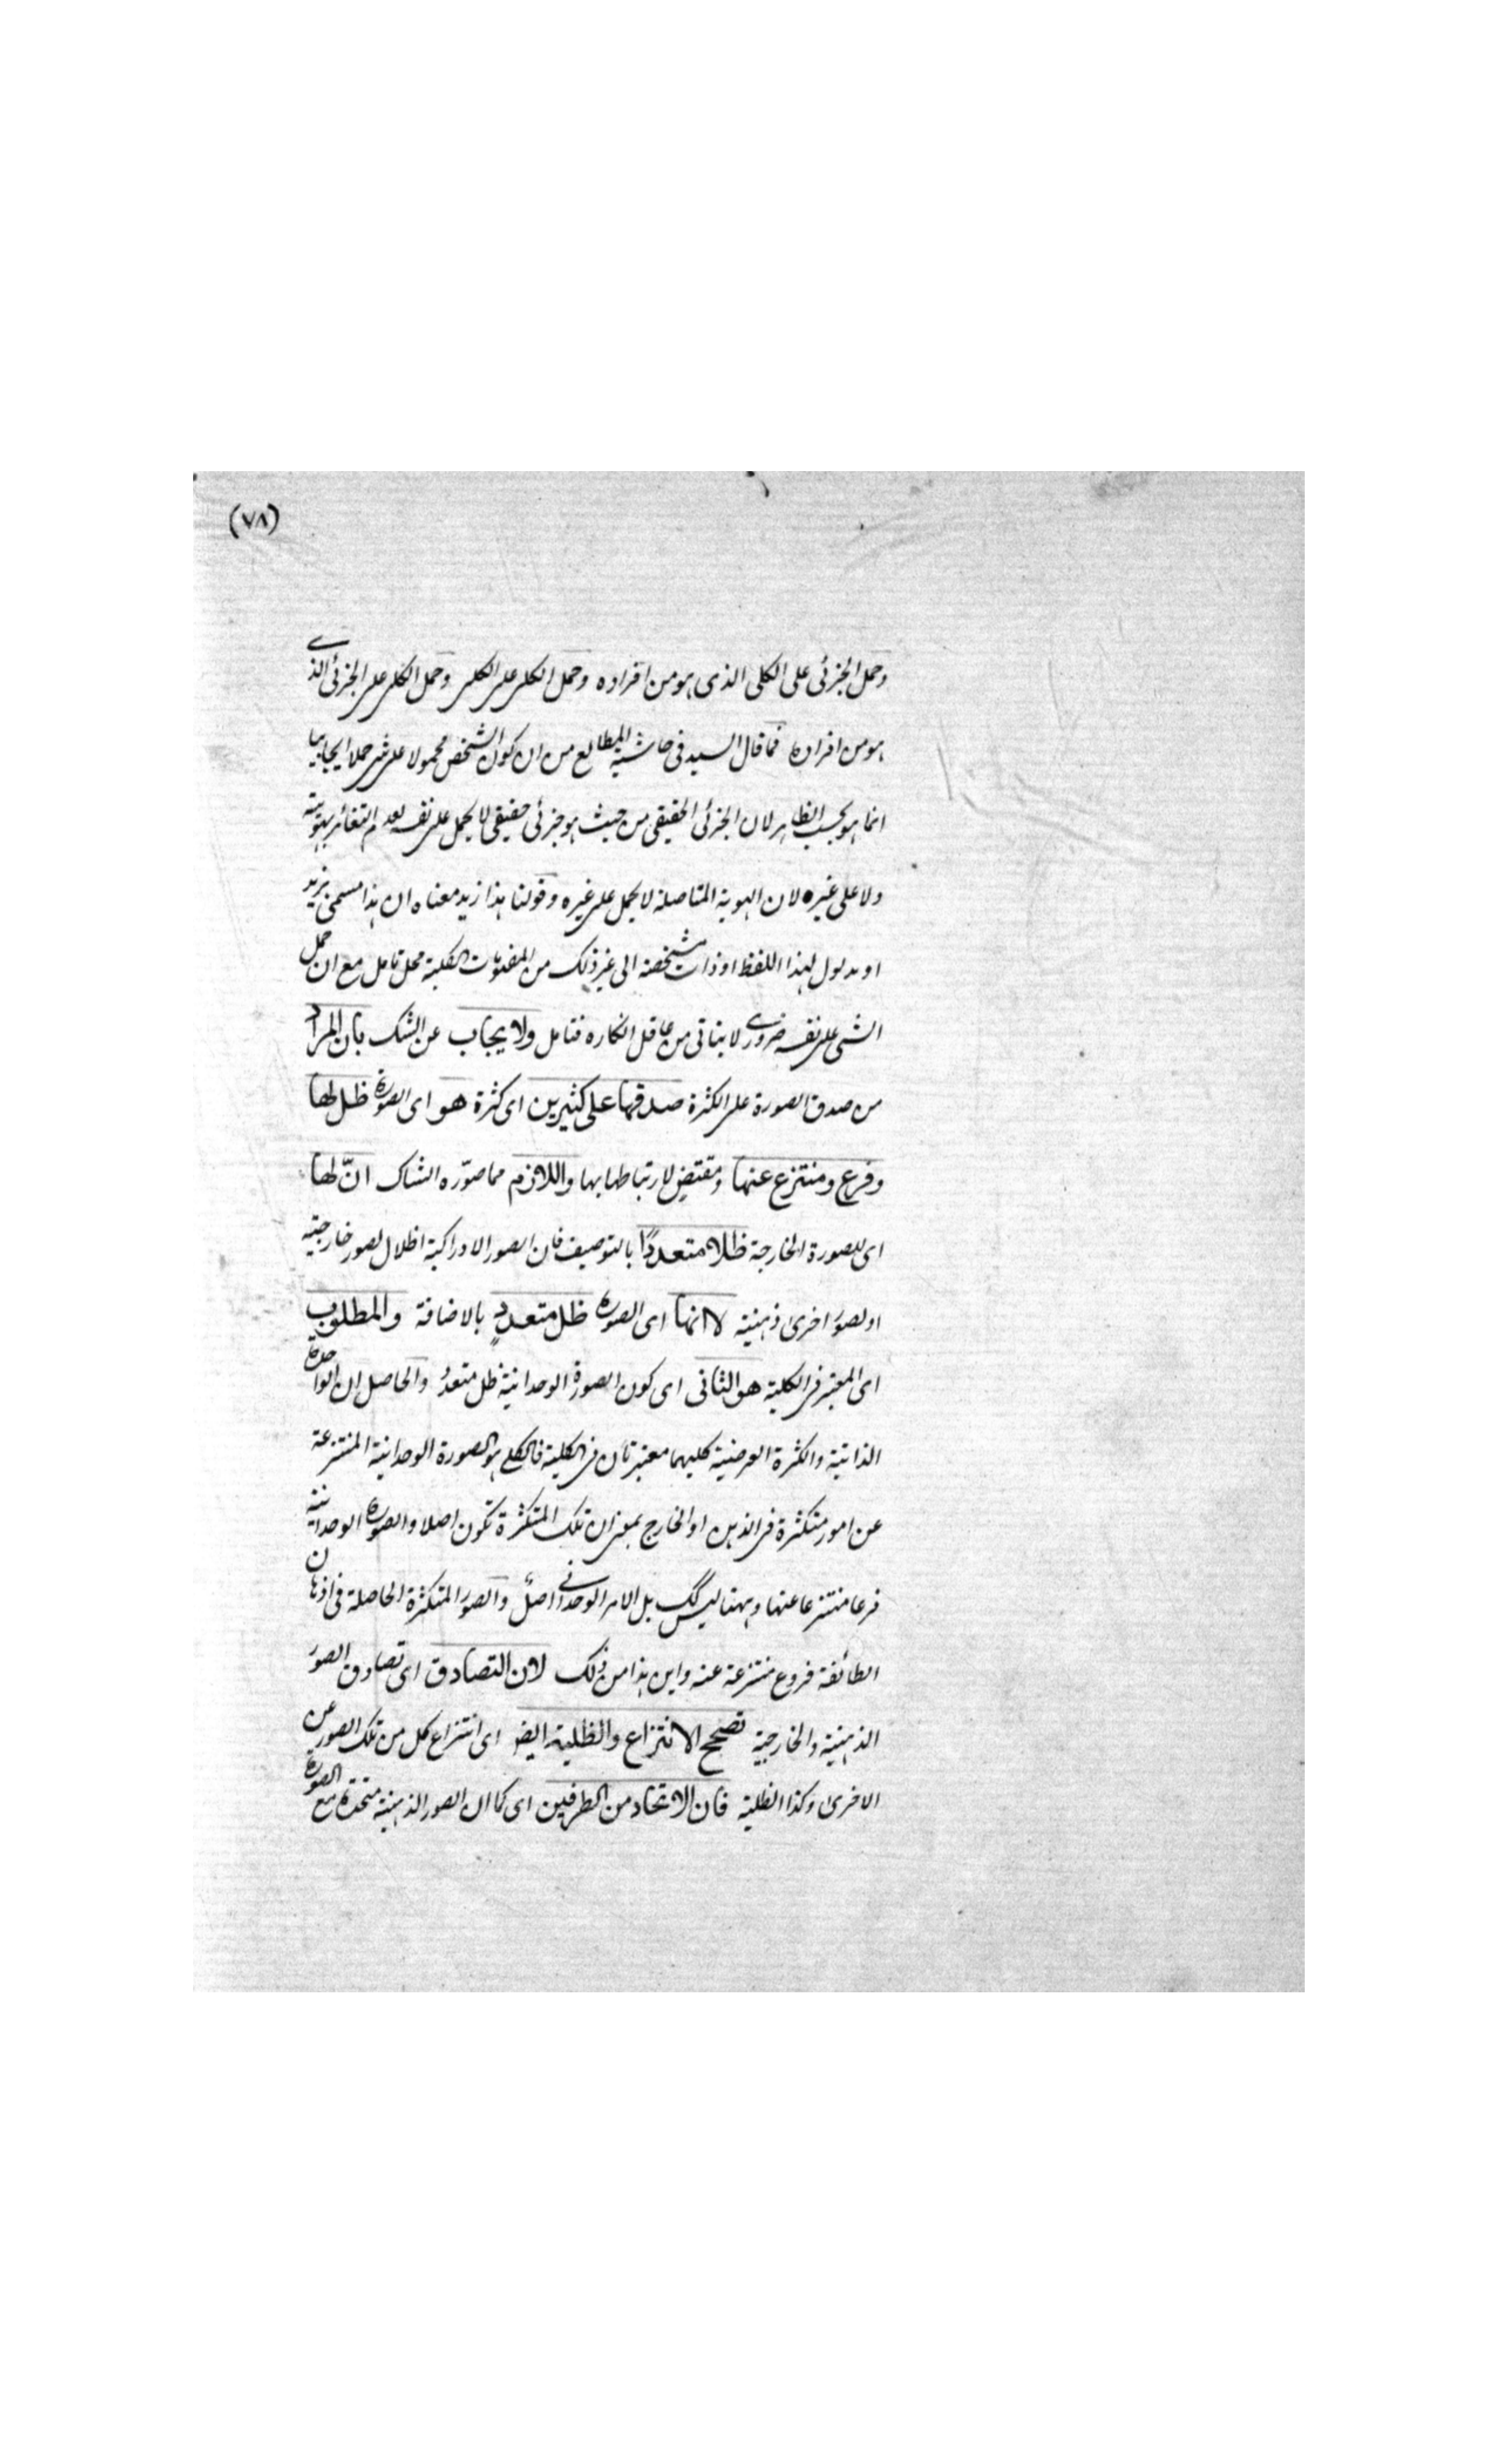 (٧٨)
وحمل الجزئى على الكلى الذى هو من افراده وحمل الكلى على الكلى وحمل الكلى على الجزئى الذے
هو من افراده فما قال السيد فى حاشية المطالع من ان كون الشخص محمولا على شئ حملا ايجابيا
انما هو بحسب الظاهر لان الجزئى الحقيقى من حيث هو جزئى حقيقى لا يحمل على نفسه لعدم التغائر بهويته
ولا على غيره لان الهوية المتاصلة لا يحمل على غيره وقولنا هذا زيد معناه ان هذا مسمى بزيد
او مدلول لهذا اللفظ او ذات مشخصة الى غير ذلك من المفهومات الكلية محل تامل مع ان حمل
الشئ على نفسه ضرورے لا يتاتى من عاقل انكاره فتامل ولا يجاب عن الشك بان المراد
من صدق الصورة على الكثرة صدقها على كثيرين اى كثرة هو اى الصورة ظل لها
وفرع ومنتزع عنها ومقتض لارتباطها بها واللازم مما صوّره الشاك انّ لها
اى للصورة الخارجة ظلا متعددًا بالتوصيف فان الصور الادراكية اظلال لصور خارجية
او لصور اخرى ذهنية لا انها اى الصورة ظل متعددٍ بالاضافة والمطلوب
اى المعتبر فى الكلية هو الثانى اى كون الصورة الوحدانية ظل متعدد والحاصل ان الواحدة
الذاتية والكثرة العرضية كليهما معتبرتان فى الكلية فالكلى هو الصورة الوحدانية المنتزعة
عن امور متكثرة فى الذهن او الخارج بمعنى ان تلك المتكثرة تكون اصلا والصورة الوحدانية
فرعا منتزعا عنها وههنا ليس كك بل الامر الوحدانى اصل والصور المتكثرة الحاصلة فى اذهان
الطائفة فروع منتزعة عنه واين هذا من ذلك لان التصادق اى تصادق الصور
الذهنية والخارجية تصحح الانتزاع والظلية ايضا اى انتزاع كل من تلك الصور عن
الاخرى وكذا الظلية فان الاتحاد من الطرفين اى كما ان الصور الذهنية متحدة مع الصورة